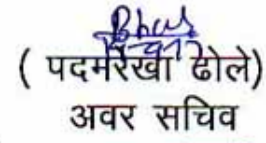 ( पदमरेखा ढोले)
अवर सचिव